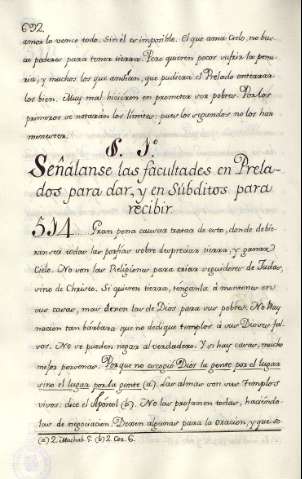 692
amor lo vence todo. Sin él es imposible. El que ama Cielo, no bus-
ca poderes para tomar tierra. Pero quieren pocos sufrir la penu-
ria, y muchos los que anhelan, que pudiera el Prelado enterrar
los bien. Muy mal hicieron en prometer ser pobres. Por los
primeros se notarán los límites; pues los segundos no los han
menester.
§. 1º
Señálanse las facultades en Prela-
dos para dar, y en Súbditos para
recibir.
514. Gran pena causa tratar de esto, donde debie-
ran ser todas las porfías sobre despreciar tierra, y ganar
Cielo. No son las Religiones para criar seguidores de Judas,
sino de Christo. Si quieren tierra, tenganla á menos en
sus casas, mas dexen las de Dios para sus pobres. No hay
nacion tan bárbara que no dedique templos á sus Dioses fal-
sos. No se pueden negar al verdadero. Y si hay casas, mucho
mejor personas. Porque no escogió Dios la gente por el lugar
sino el lugar por la gente (a), dar almas son sus Templos
vivos: dice el Apóstol (b). No los profanen todas, haciéndo-
las de negociacion. Dexen algunas para la oracion, y que se
(a) 2. Machab. 5. (b) 2. Cor. 6.